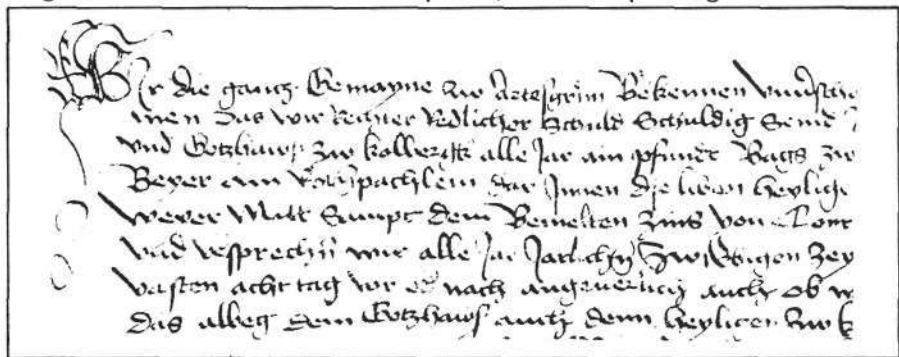 Wir die gantz Gemayne zw Aetesgrim Bekennen vnnd
men das wir Rechter Redlicher Schuld Schuldig Seind
vnd Gotzhaws zw kollers alle Jar ain pfundt Wags zw
Beyer am dar Innen die liben heylige
weyer Mitt Sampt dem Bemelten Zins von
vnd vesprechn wir alle Jar Jarlichn Zw Ewigen Zey
vasten acht tag vor od nach angeuerlich auch ob w
das albeg dem Gotzhaws auch denn heyligen zw k